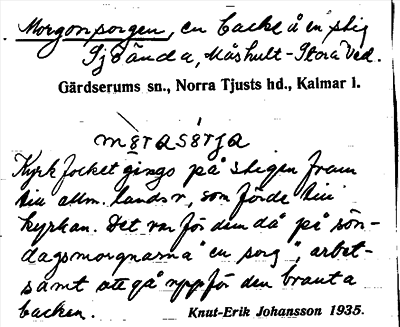 Morgonsorgen, en backe å en stig
Sjöända, Måshult - Stora Ved.
Gärdserums sn., Norra Tjusts hd., Kalmar l.
Kyrkfolket gingo på stigen fram
till allm. landsv., som förde till
kyrkan. Det var för dem då på sön-
dagsmorgnarna "en sorg", arbet-
samt att gå uppför den branta
backen. Knut-Erik Johansson 1935.